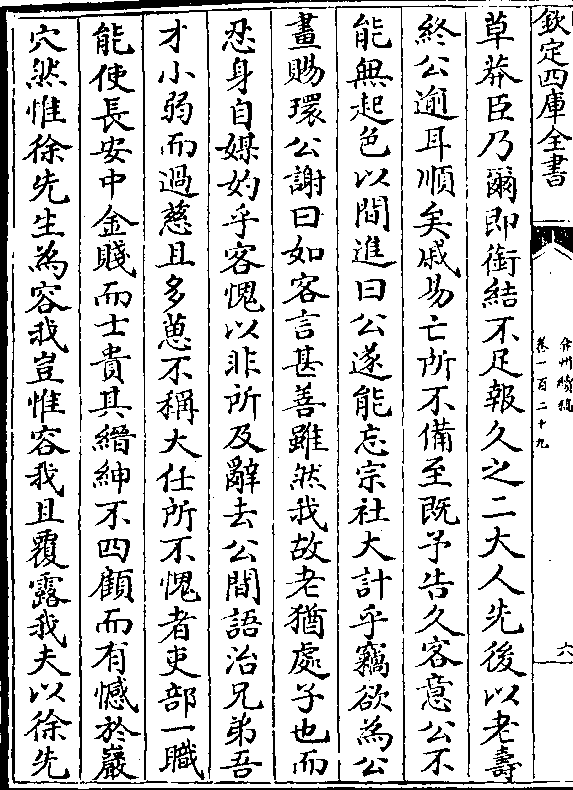 欽定四庫全書
弇州續稿
卷一百二十九
六
草莽臣乃爾即銜結不足報久之二大人先後以老壽
終公逾耳順矣戚易亡所不備至既予告久客意公不
能無起色以間進曰公遂能忘宗社大計乎竊欲為公
畫賜環公謝曰如客言甚善雖然我故老猶處子也而
忍身自媒妁乎客愧以非所及辭去公間語冶兄弟吾
才小弱而過慈且多蔥不稱大任所不愧者吏部一職
能使長安中金賤而士貴其縉紳不四顧而有憾於巖
穴然惟徐先生為容我豈惟容我且覆露我夫以徐先